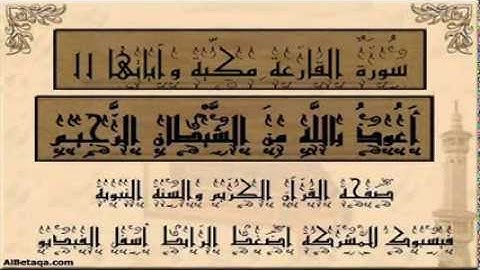 سُورَةُ القَارِعَةِ مكيّة وآياتها 11
أَعُوذُ بِاللَّهِ مِنَ الشَّيْطَانِ الرَّجِيمِ
صفحة القرآن الكريم والسنة النبوية
فيسبوك للمشركة اضغط الرابط أسفل الفيديو
AlBetaqa.com